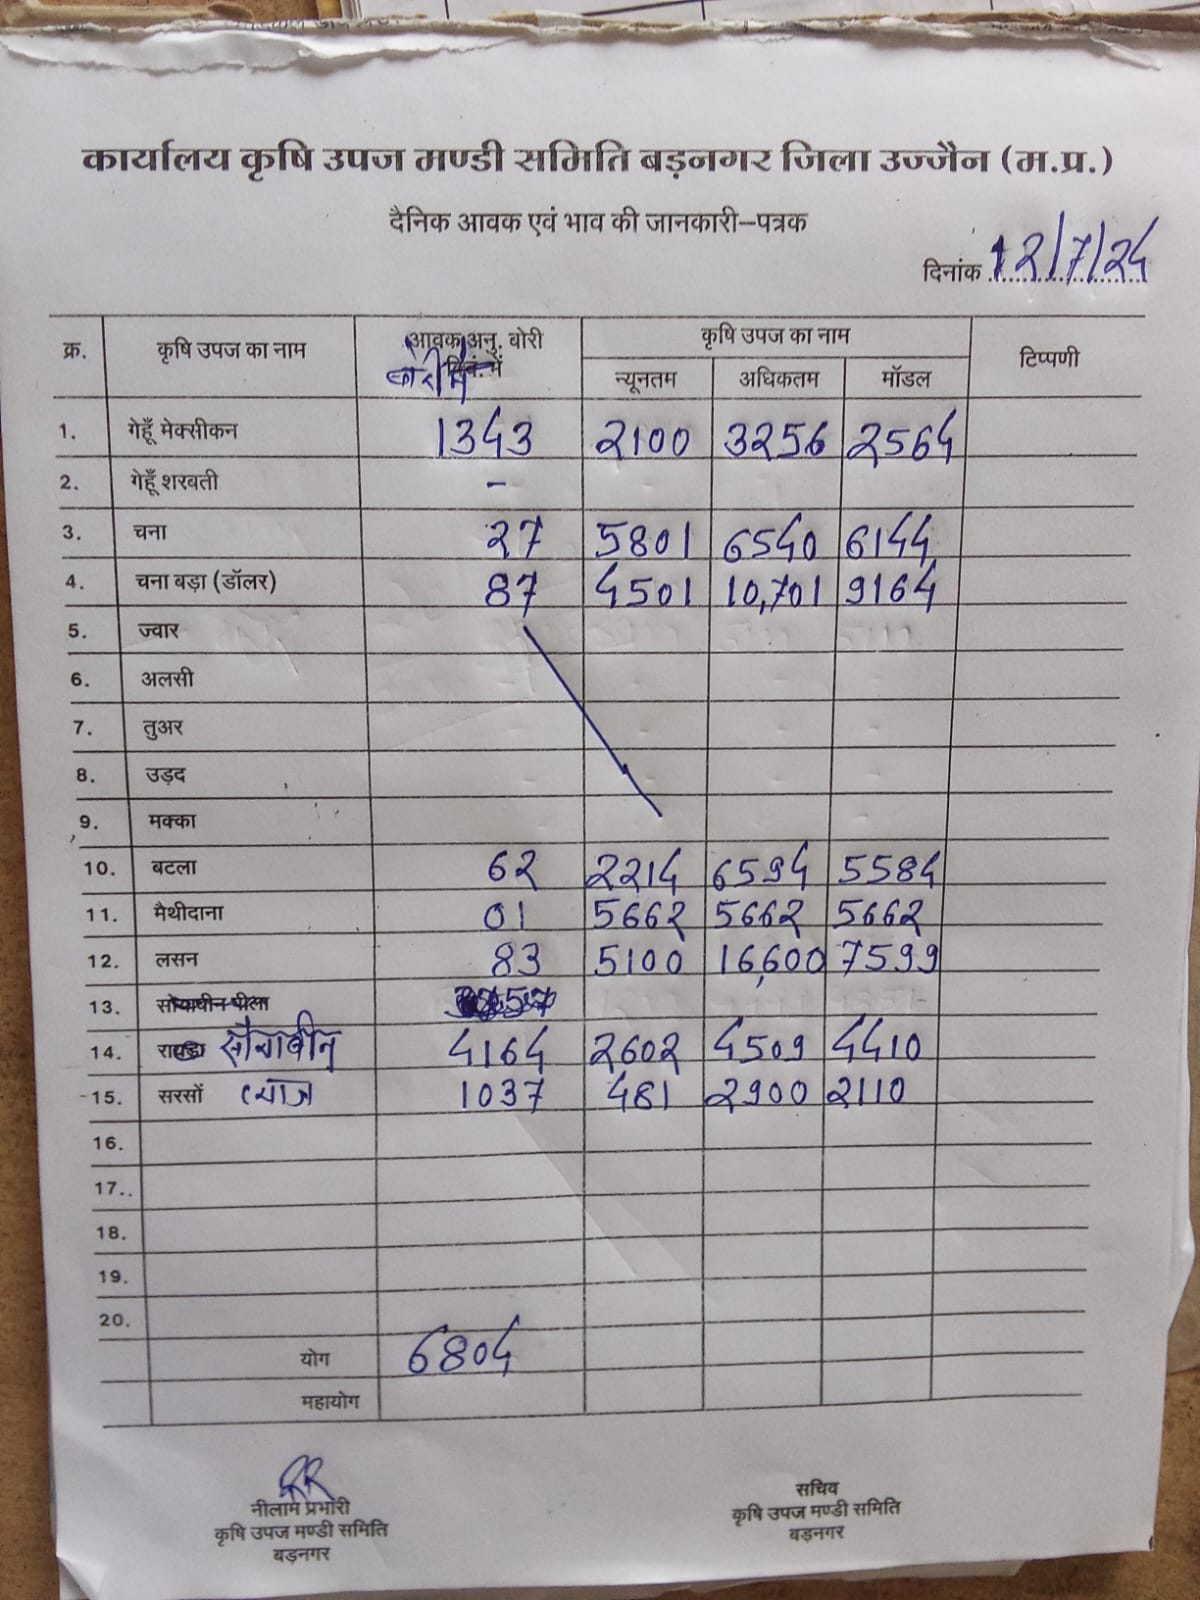 कार्यालय कृषि उपज मण्डी समिति बड़नगर जिला उज्जैन (म.प्र.)
दैनिक आवक एवं भाव की जानकारी–पत्रक
दिनांक 12/7/24
क्र. कृषि उपज का नाम आवक अनु. बोरी कृषि उपज का नाम टिप्पणी
बोरी में
न्यूनतम अधिकतम मॉडल
1. गेहूँ मेक्सीकन 1343 2100 3256 2564
2. गेहूँ शरबती –
3. चना 27 5801 6540 6144
4. चना बड़ा (डॉलर) 87 4501 10,701 9164
5. ज्वार
6. अलसी
7. तुअर
8. उड़द
9. मक्का
10. बटला 62 2214 6594 5584
11. मैथीदाना 01 5662 5662 5662
12. लसन 83 5100 16,600 7599
13. सोयाबीन पीला
14. सोयाबीन 4164 2602 4509 4410
15. सरसों प्याज 1037 481 2900 2110
16.
17..
18.
19.
20.
योग 6804
महायोग
नीलाम प्रभारी
कृषि उपज मण्डी समिति
बड़नगर
सचिव
कृषि उपज मण्डी समिति
बड़नगर